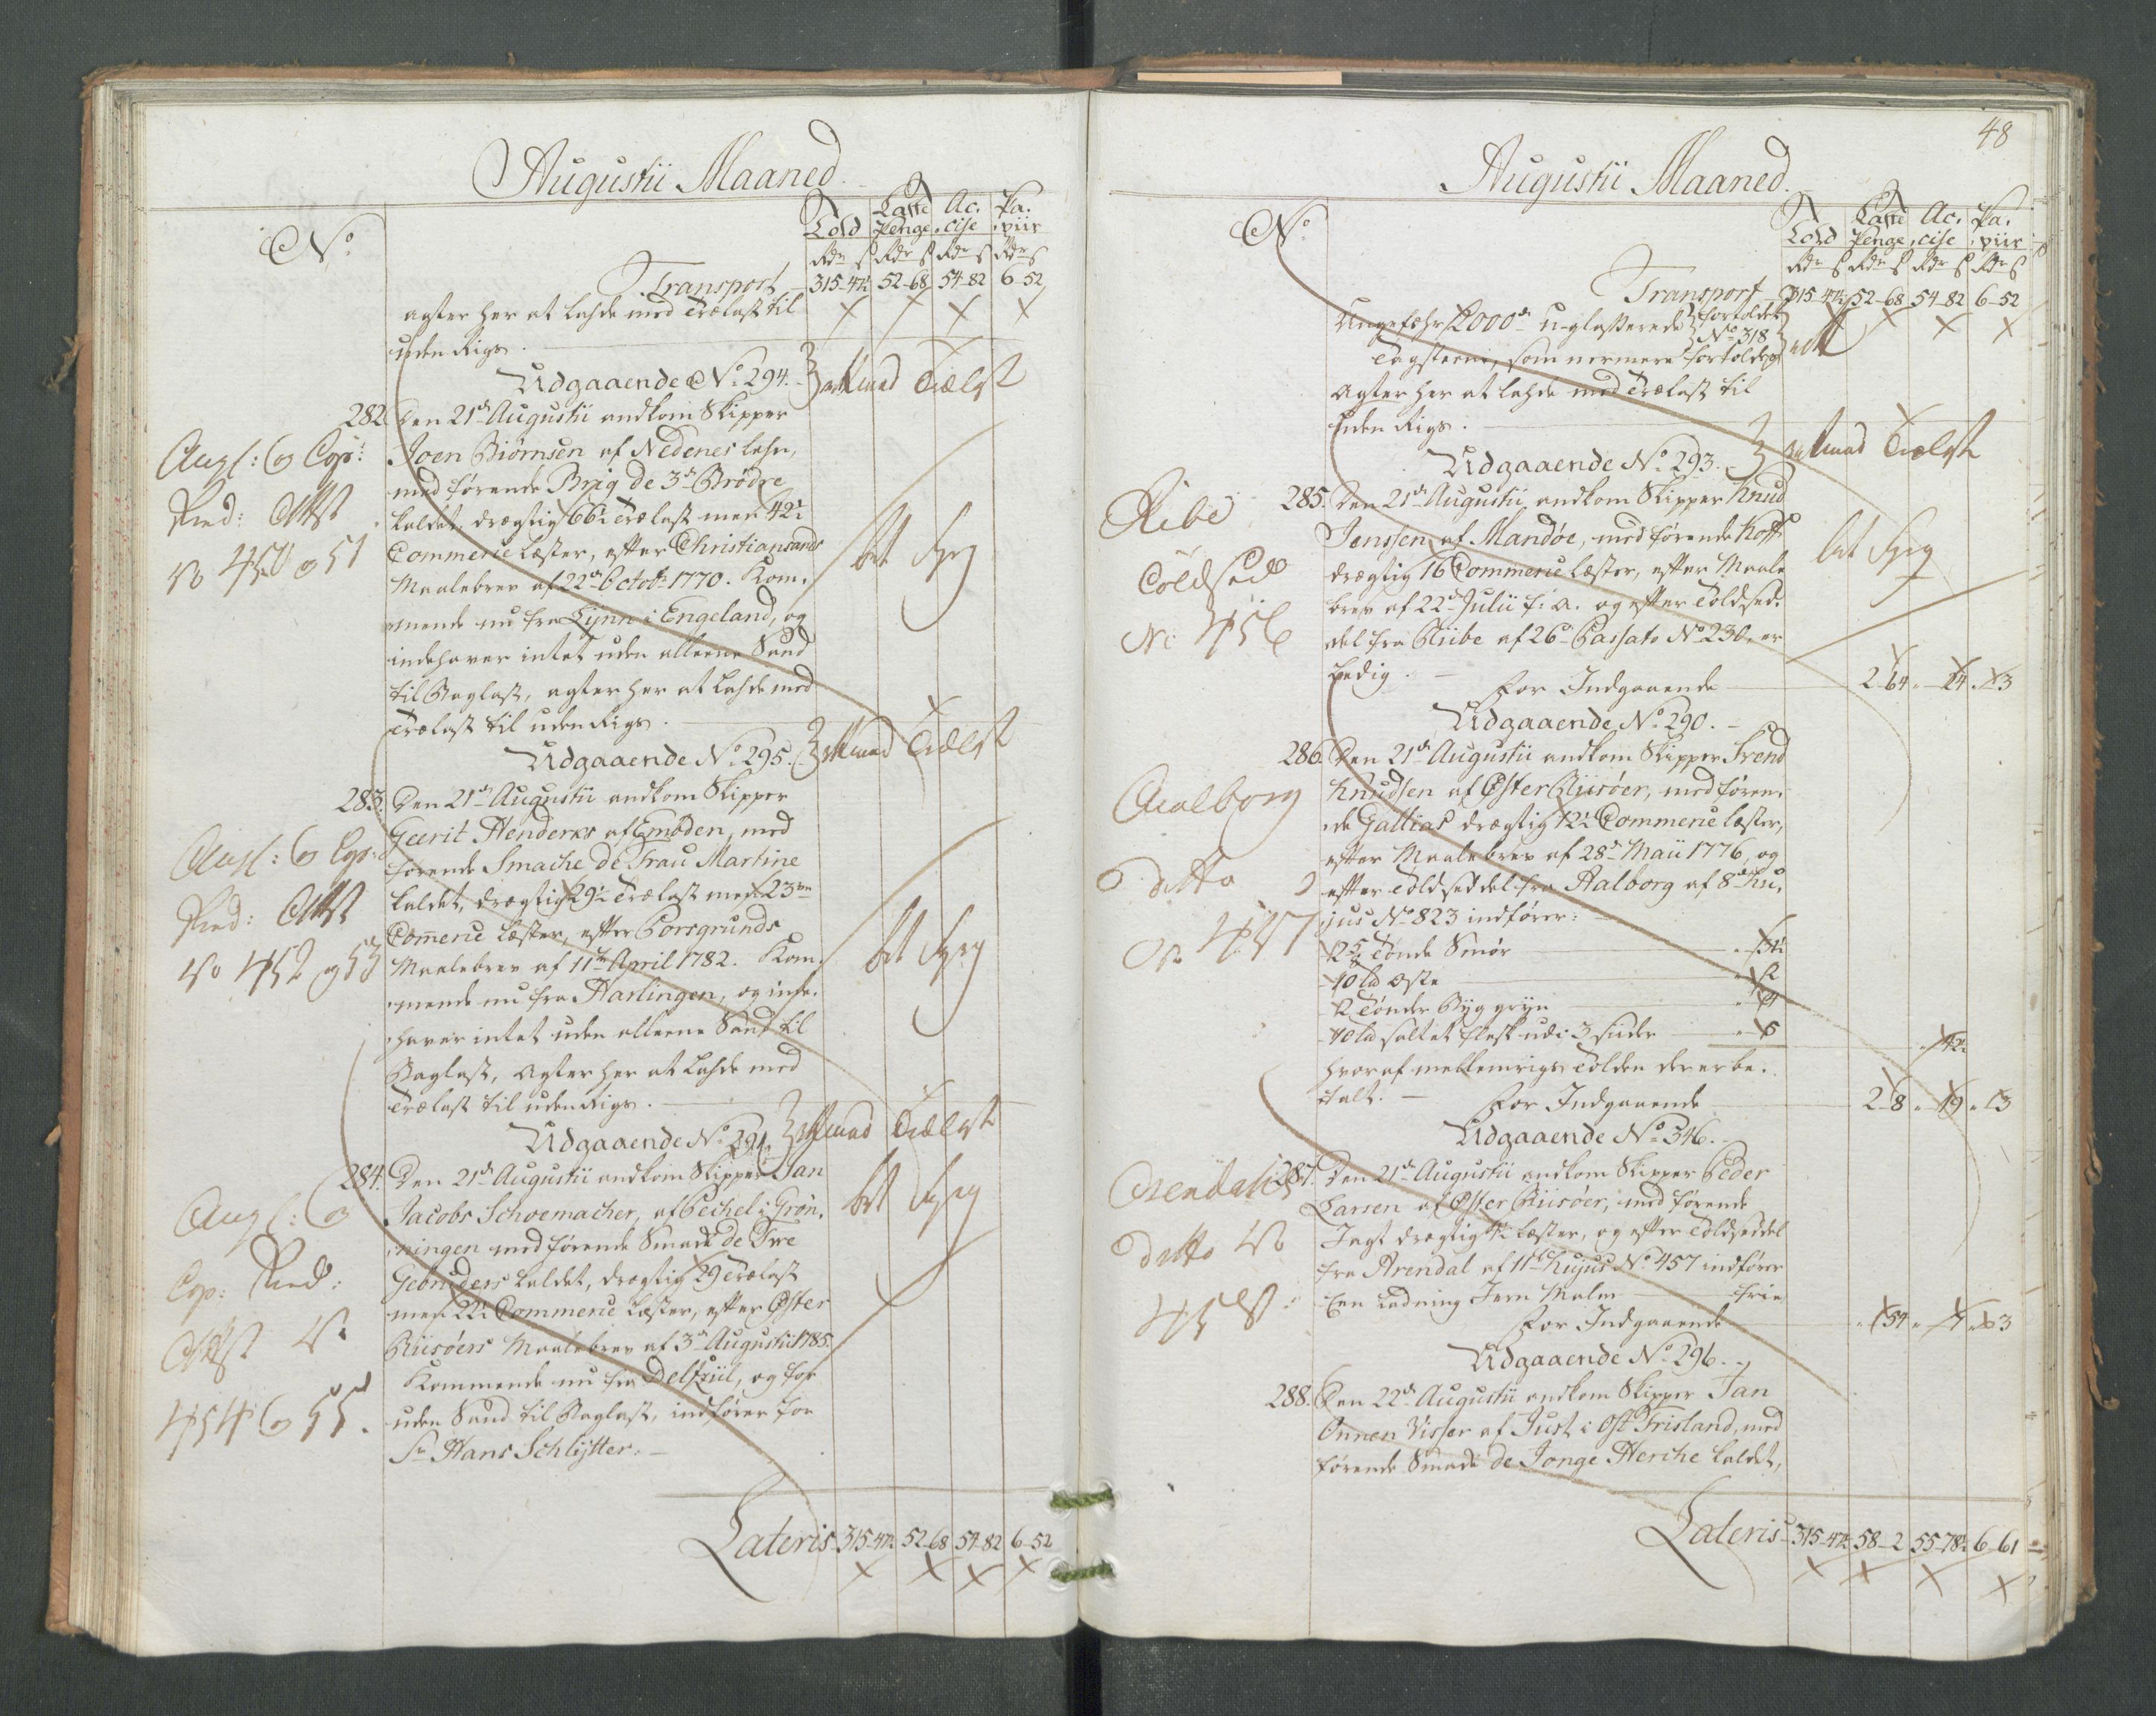 Augustii Maaned
No
Told
Laste Penge
Ac. cise
Pa. piir
Rdr s Rdr s Rdr s Rdr s
Transport 315-47½ 52-68 54-82 6-52
agter her at lahde med Trælast til
uden Rigs.
Udgaaende No 294.
282. Den 21de Augustii ankom Skipper
Joen Biørnsen af Nedenes lehn,
med førende Brig de 3de Brødre
kaldet, drægtig 66½ Trælast mer 42½
Commerce Læster, efter Christiansands
Maalebrev af 22de Octobr 1770. Kom-
mende nu fra Lynn i Engeland, og
indehaver intet uden alleene Sand
til Baglast, agter her at lahde med
Trælast til uden Rigs.
No 450 og 51
Udgaaende No 295.
283. Den 21de Augustii ankom Skipper
Geerit Henderks af Embden, med
førende Smacke de Frau Martine
kaldet, drægtig 29½ Trælast mer 23
Commerce Læster, efter Porsgrunds
Maalebrev af 11te April 1782. Kom-
mende nu fra Harlingen, og inde-
haver intet uden alleene Sand til
Baglast, agter her at lahde med
Trælast til uden Rigs.
No 452 og 53
Udgaaende No 291.
284. Den 21de Augustii ankom Skipper Jan
Jacobs Schoemacher, af Peckel i Grøn-
ningen med førende Smack de Twe
Gebruders kaldet, drægtig 29 Trælast
mer 22½ Commerce Læster, efter Øster
Riisøers Maalebrev af 3de Augustii 1785.
Kommende nu fra Delfziil, og for
uden Sand til Baglast, indfører for
Sr Hans Schlytter.
No 454 og 55.
Lateris 315-47½ 52-68 54-82 6-52
48
Augustii Maaned.
No
Told
Laste Penge
Ac. cise
Pa. piir
Rdr s Rdr s Rdr s Rdr s
Transport 315-47½ 52-68 54-82 6-52
Ungefæhr 2000de u-glasserede fortoldet No 318
Tagsteene, som nermere fortoldes,
agter her at lahde med Trælast til
uden Rigs.
Udgaaende No 293.
285. Den 21de Augustii ankom Skipper Knud
Jenssen af Mandøe, med førende Koff
drægtig 16 Commerce Læster, efter Maale
brev af 22de Julii f: a. og efter Toldsed-
del fra Riibe af 26de Passato No 230 er
Ledig.
For Indgaaende 2-64. 24. 3
Ribe
Toldsed
No 456
Udgaaende No 290.
286. Den 21de Augustii ankom Skipper Svend
Knudsen af Øster Riisøer, med føren-
de Gallias drægtig 12½ Commerce Læster,
efter Maalebrev af 28de Maii 1776, og
efter Toldseddel fra Aalborg af 8de Hu-
jus No 823 indfører:
Tønde Smør
10 lb Oste
2 Tønder Byg gryn
40 lb saltet flesk udi 3 siider
hvoraf mellemrigs Tolden der er be-
talt.
For Indgaaende 2-8. 19. 3
Aalborg
Ditto
No 457
Udgaaende No 346.
287. Den 21de Augustii ankom Skipper Peder
Larsen af Øster Riisøer, med førende
Jagt drægtig 4½ Læster, og efter Toldseddel
fra Arendal af 11te Hujus No 457 indfører
Een Ladning Jern Malm frie
For Indgaaende
Arendals
Ditto No
458
Udgaaende No 296.
288. Den 22de Augustii ankom Skipper Jan
Onnen Visser af Just i Ost Frisland, med
førende Smack de Jonge Herche kaldet,
Lateris 315-47½ 58-2 55-78½ 6-61